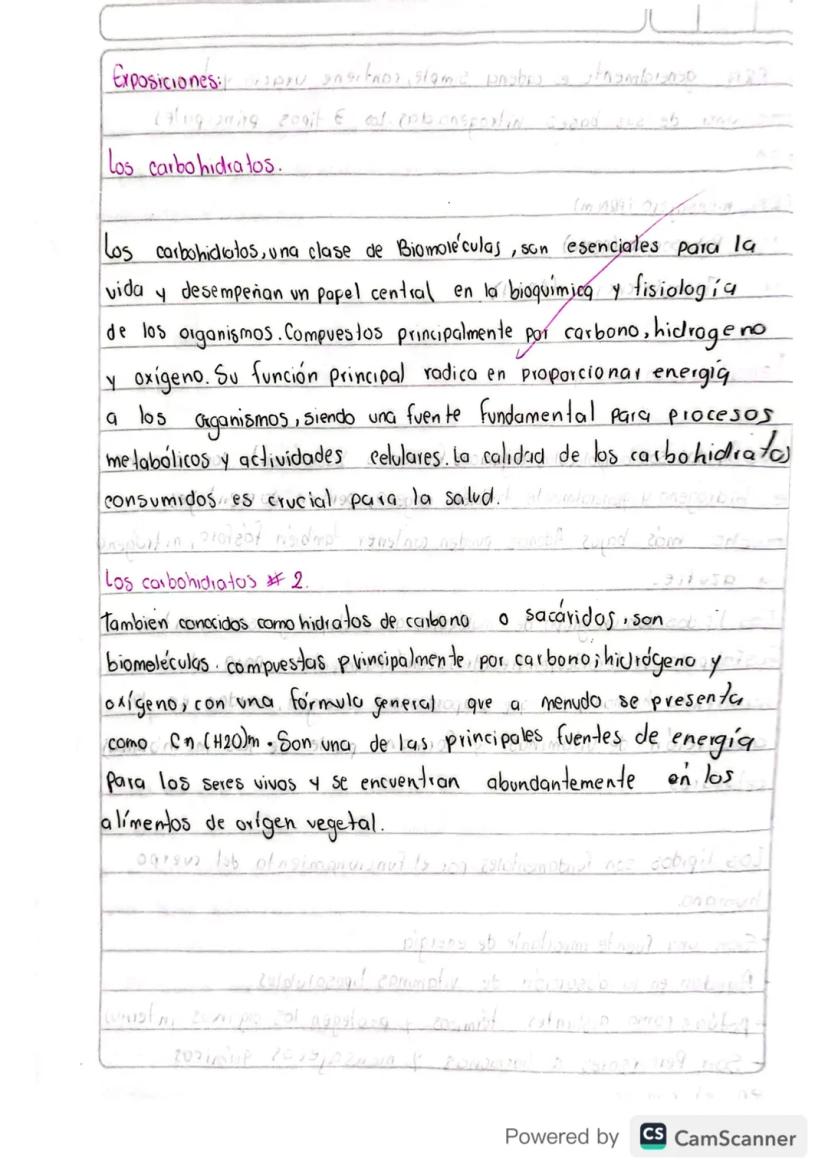 Exposiciones:
Los carbohidratos.
Los carbohidratos, una clase de Biomoléculas, son esenciales para la
vida y desempeñan un papel central en la bioquímica y fisiología
de los organismos. Compuestos principalmente por carbono, hidrogeno
y oxígeno. Su función principal radica en proporcionar energía
a los organismos, siendo una fuente fundamental para procesos
metabólicos y actividades celulares. La calidad de los carbohidratos
consumidos es crucial para la salud.
Los carbohidratos # 2.
También conocidos como hidratos de carbono o sacáridos, son
biomoléculas compuestas principalmente por carbono; hidrógeno y
oxígeno, con una fórmula general que a menudo se presenta
como Cn (H2O)m. Son una de las principales fuentes de energía
Para los seres vivos y se encuentran abundantemente en los
alímentos de orígen vegetal.
Powered by CS CamScanner